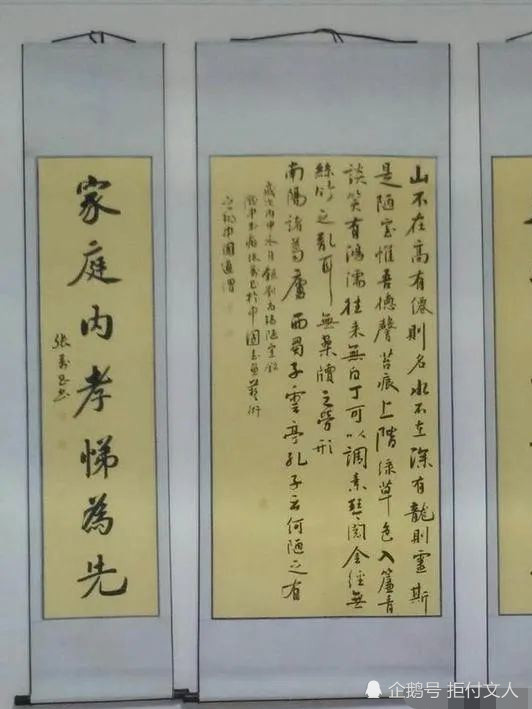 山不在高有僊則名水不在深有龍則靈斯
是陋室惟吾德馨苔痕上階綠草色入簾青
談笑有鴻儒往来無白丁可以調素琴閱金經無
絲竹之亂耳無案牘之勞形
南陽諸葛廬西蜀子雲亭孔子云何陋之有
歲次丙申冬月錄劉禹錫陋室銘
於中國書画藝術
中國通渭
家庭内孝悌為先
張
企鹅号 拒付文人